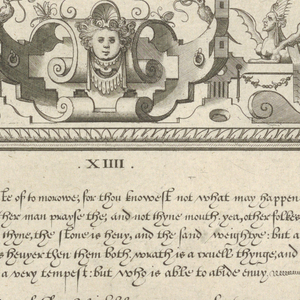 . XIIII .
ſte of to morowe, for thou knoweſt not what may happen
ther man prayſe the, and not thyne mouth. yea, other folkes
thyne, the ſtone is hevy, and the ſand weighye: but a
is hevyer then them both, wrath is a cruell thynge, and
a very tempeſt: but who is able to abide envy,